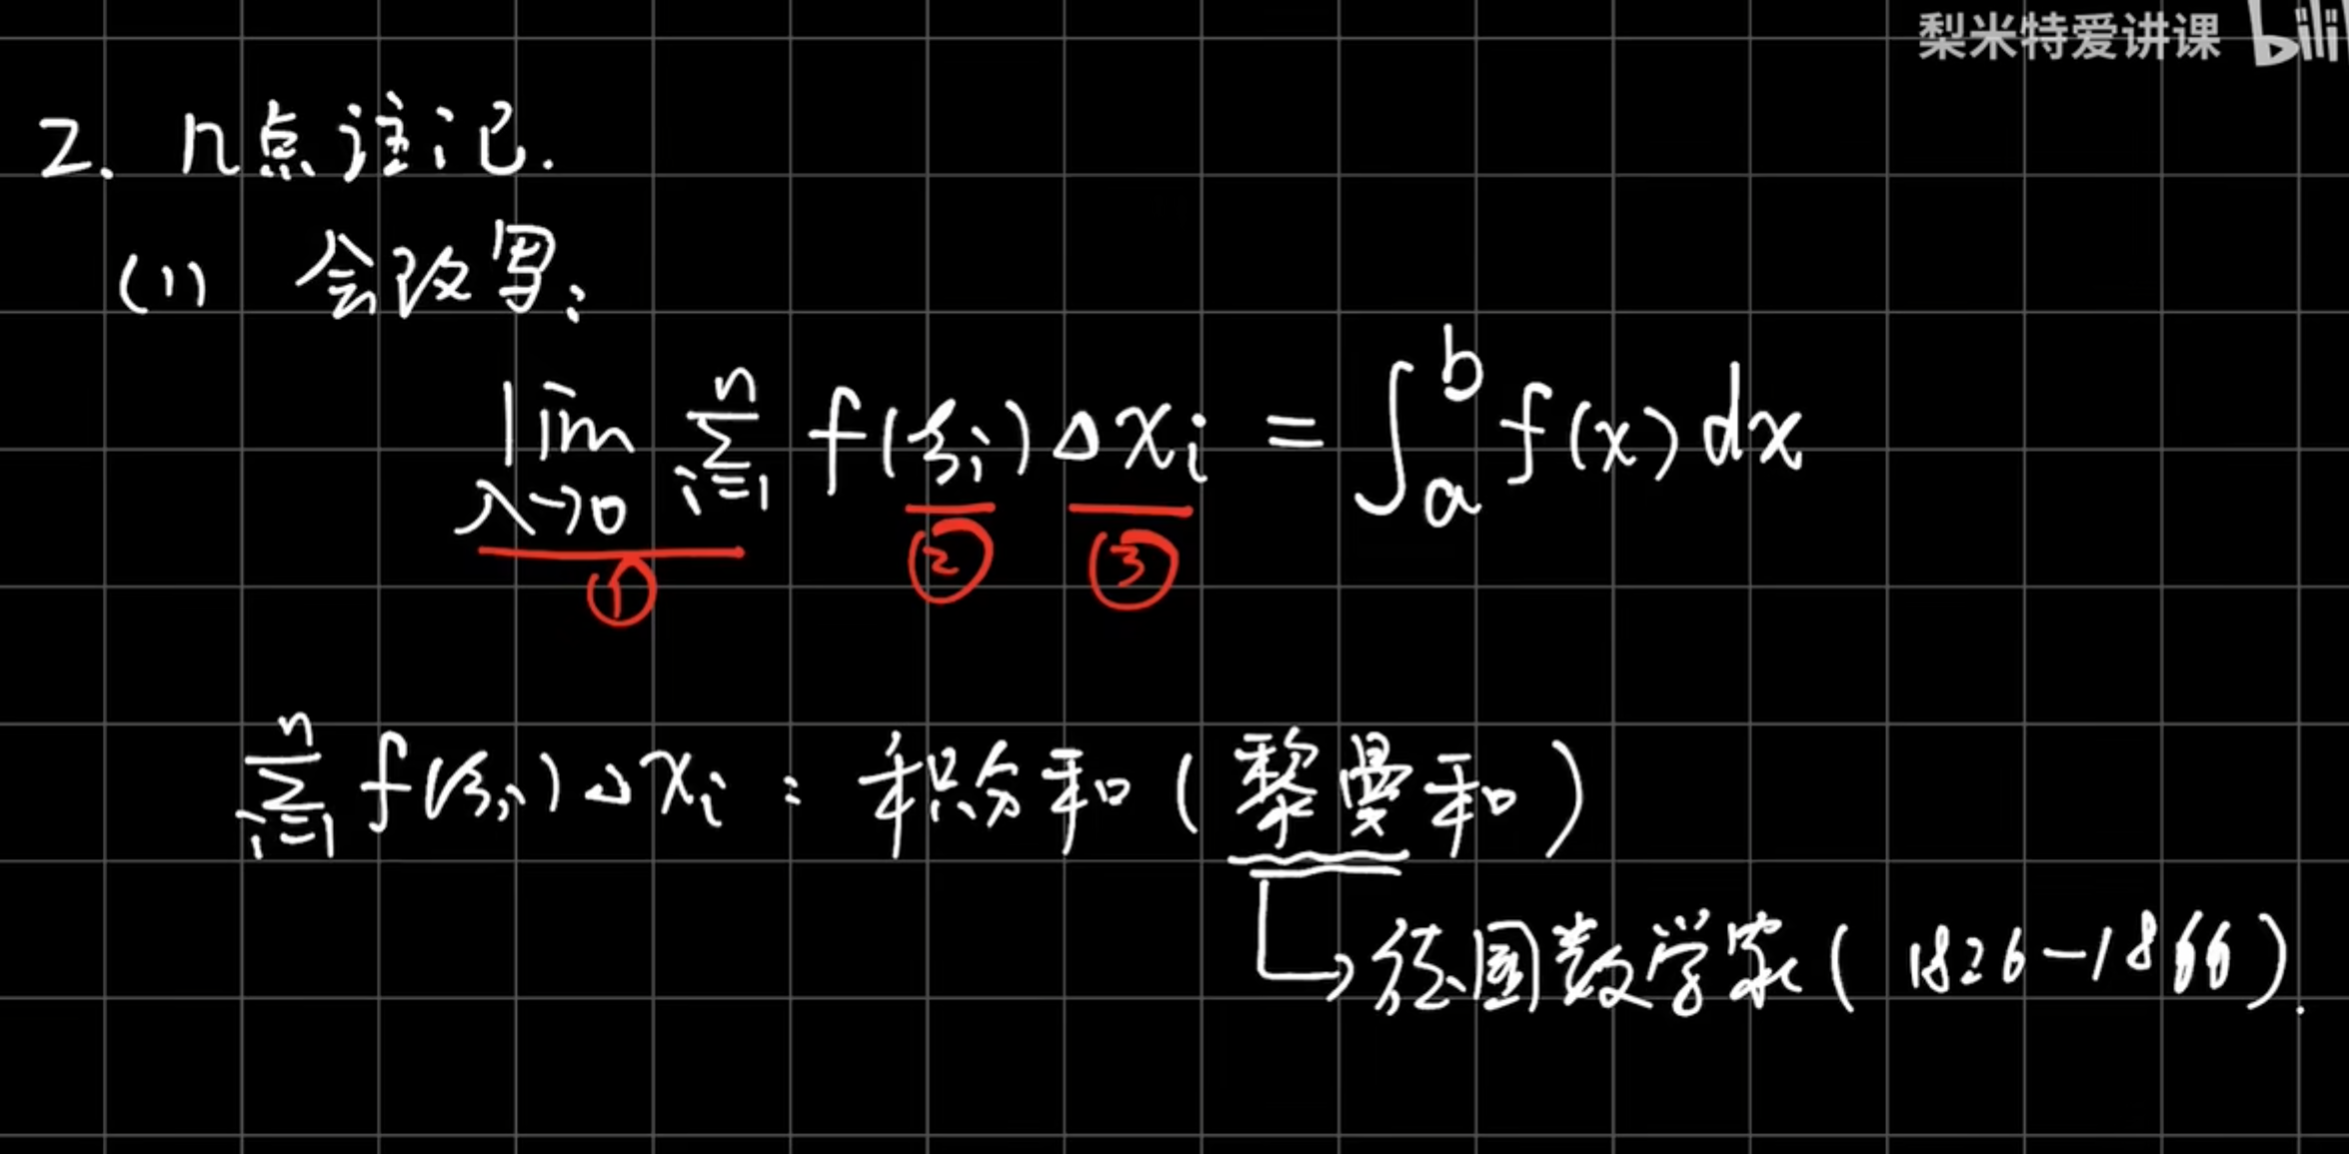 梨米特爱讲课 bili
2. n点注记.
(1) 会改写:
lim λ→0 ∑ i=1 n f(ξi)Δxi = ∫ a b f(x)dx
① ② ③
∑ i=1 n f(ξi)Δxi : 积分和(黎曼和)
德国数学家(1826-1866).